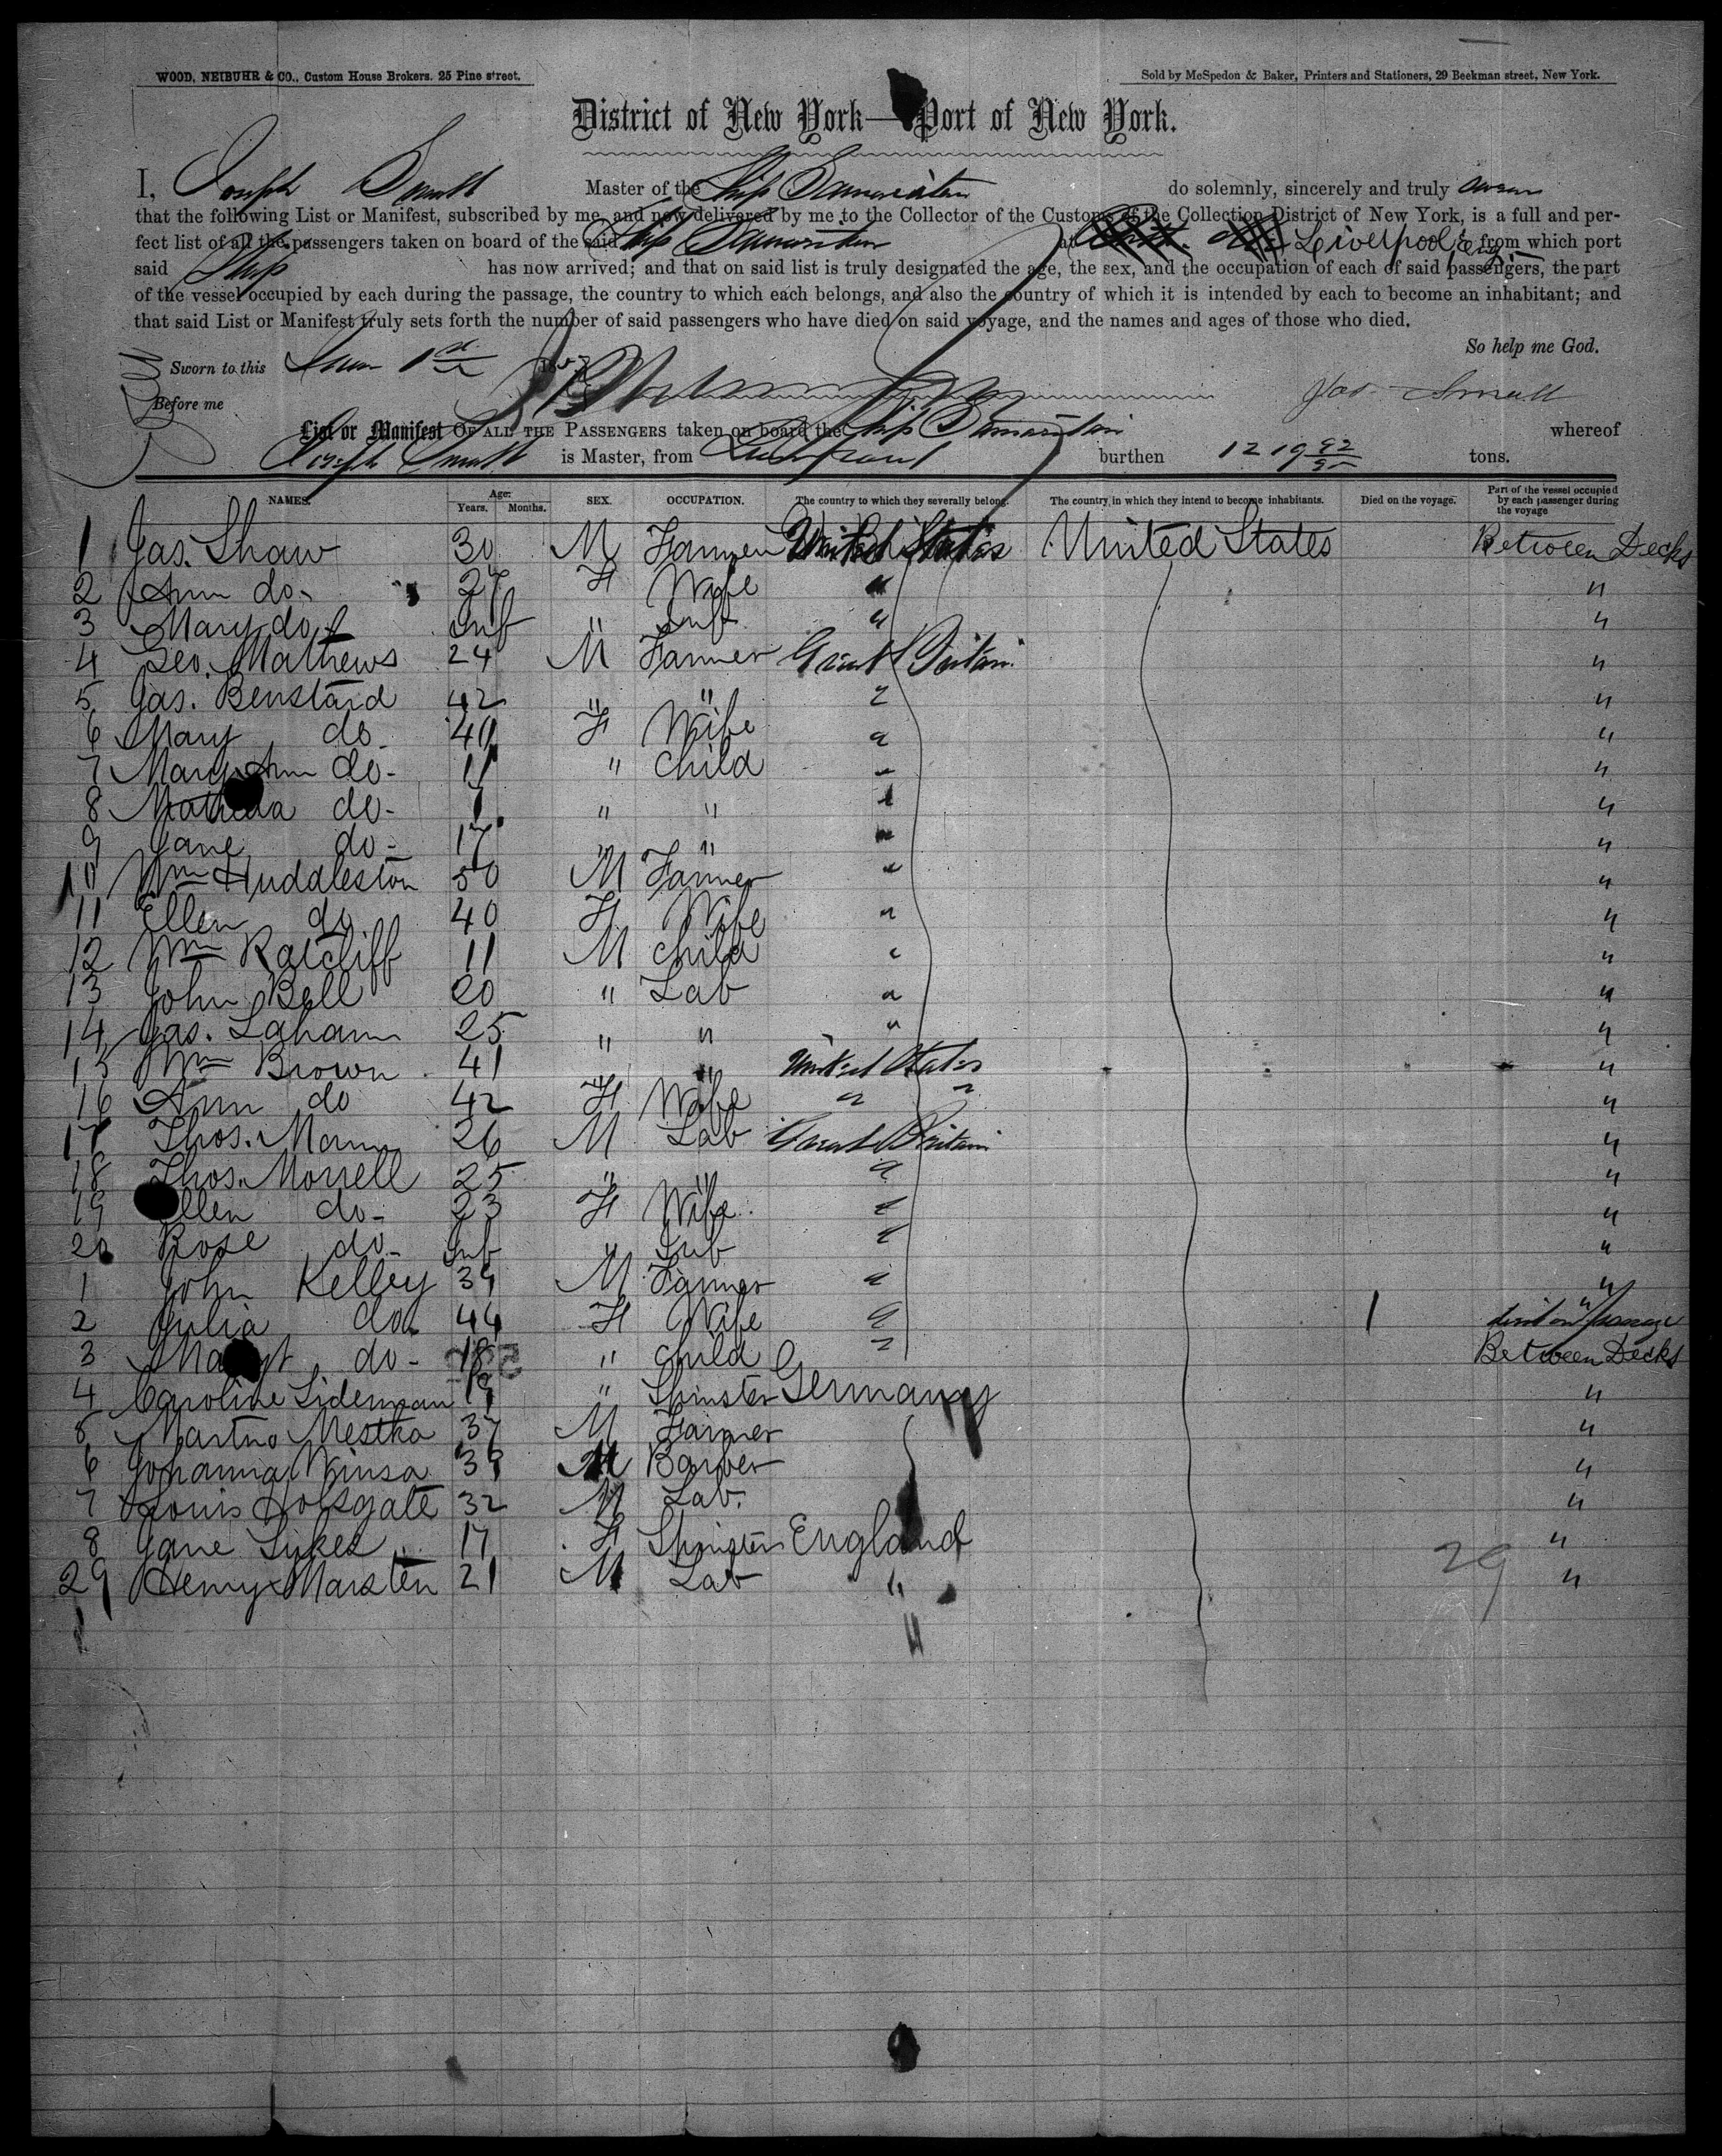 WOOD, NEIBUHR & CO., Custom House Brokers. 25 Pine street.
Sold by McSpedon & Baker, Printers and Stationers, 29 Beekman street, New York.
District of New York—Port of New York.
I, Joseph Small Master of the Ship Samaritan do solemnly, sincerely and truly swear
that the following List or Manifest, subscribed by me, and now delivered by me to the Collector of the Customs of the Collection District of New York, is a full and per-
fect list of all the passengers taken on board of the said Ship Samaritan at Liverpool Eng from which port
said Ship has now arrived; and that on said list is truly designated the age, the sex, and the occupation of each of said passengers, the part
of the vessel occupied by each during the passage, the country to which each belongs, and also the country of which it is intended by each to become an inhabitant; and
that said List or Manifest truly sets forth the number of said passengers who have died on said voyage, and the names and ages of those who died.
So help me God.
Sworn to this 1st 185
Before me
Jos Small
List or Manifest OF ALL THE PASSENGERS taken on board the Ship Samaritan whereof
Joseph Small is Master, from Liverpool burthen 1219 92/95 tons.
NAMES. Age: Years. Months. SEX. OCCUPATION. The country to which they severally belong. The country in which they intend to become inhabitants. Died on the voyage. Part of the vessel occupied by each passenger during the voyage
1 Jas. Shaw 30 M Farmer United States United States Between Decks
2 Ann do- 27 F Wife " "
3 Mary do Inf " Inf " "
4 Geo. Mathews 24 M Farmer Great Britain "
5 Jas. Benstard 42 " " " "
6 Mary do- 40 F Wife " "
7 Mary Ann do- 11 " Child " "
8 Matilda do- 1 " " " "
9 Jane do- 17 " " " "
10 Wm Huddleston 50 M Farmer " "
11 Ellen do 40 F Wife " "
12 Wm Ratcliff 11 M Child " "
13 John Bell 20 " Lab " "
14 Jas. Laham 25 " " " "
15 Wm Brown 41 " " United States "
16 Ann do 42 F Wife " " "
17 Thos. Mann 26 M Lab Great Britain "
18 Thos. Morrell 25 " " " "
19 Ellen do- 23 F Wife " "
20 Rose do- Inf " Inf " "
1 John Kelley 39 M Farmer " "
2 Julia do 44 F Wife " 1 "
3 Margt do- 18 " Child " Between Decks
4 Caroline Lideman 19 " Spinster Germany "
5 Martno Mestka 37 M Farmer "
6 Johanna Winsa 39 M Barber "
7 Louis Holsgate 32 M Lab. "
8 Jane Sykes 17 F Spinster England "
29 Henry Marsten 21 M Lab " "
29